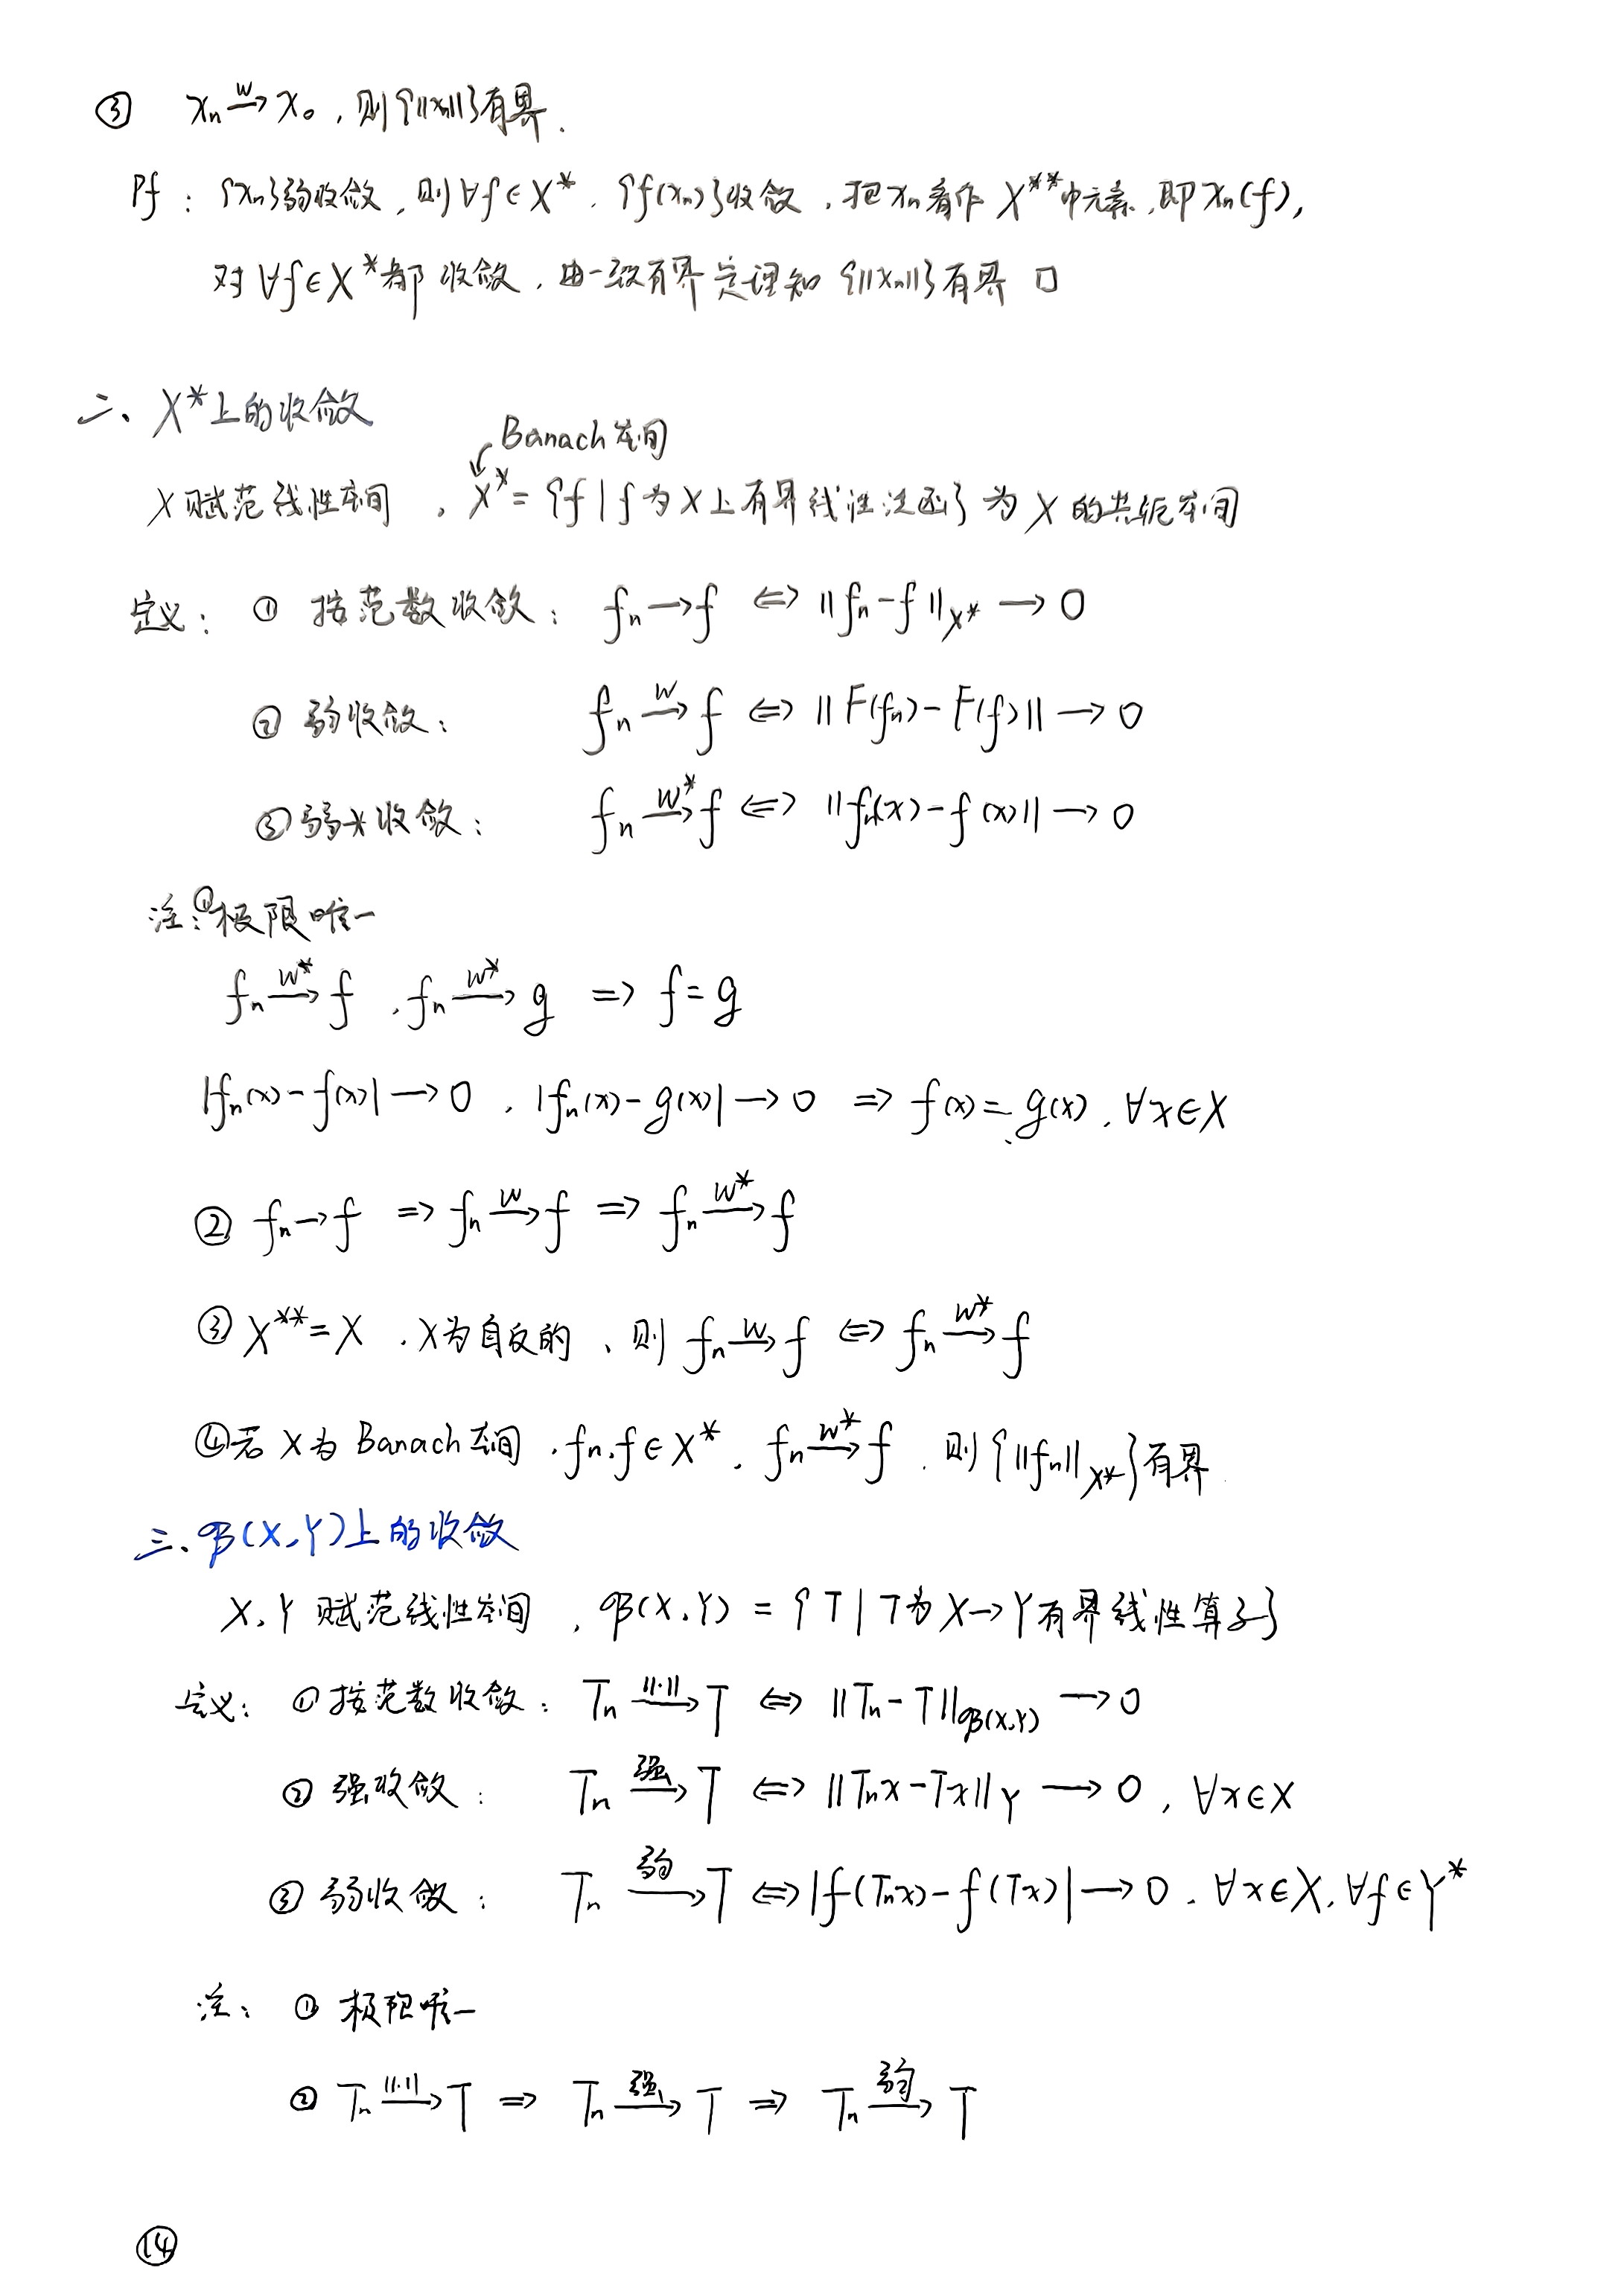 ③ xₙ —w→ x₀ , 则{‖xₙ‖}有界.
Pf : {xₙ}弱收敛, 则∀f∈X*, {f(xₙ)}收敛, 把xₙ看作 X**中元素, 即 xₙ(f),
对∀f∈X*都收敛, 由一致有界定理知 {‖xₙ‖}有界 □
二、X*上的收敛
Banach空间
X赋范线性空间 , X* = {f | f为X上有界线性泛函} 为 X 的共轭空间
定义: ① 按范数收敛: fₙ → f ⇔ ‖fₙ - f‖_X* → 0
② 弱收敛: fₙ —w→ f ⇔ ‖F(fₙ) - F(f)‖ → 0
③ 弱*收敛: fₙ —w*→ f ⇔ ‖fₙ(x) - f(x)‖ → 0
注: ①极限唯一
fₙ —w*→ f , fₙ —w*→ g ⇒ f = g
|fₙ(x) - f(x)| → 0 , |fₙ(x) - g(x)| → 0 ⇒ f(x) = g(x), ∀x∈X
② fₙ → f ⇒ fₙ —w→ f ⇒ fₙ —w*→ f
③ X** = X , X为自反的, 则 fₙ —w→ f ⇔ fₙ —w*→ f
④若 X为 Banach空间, fₙ, f∈X*, fₙ —w*→ f , 则{‖fₙ‖_X*}有界
三、𝓑(X,Y)上的收敛
X, Y 赋范线性空间 , 𝓑(X,Y) = {T | T为X→Y有界线性算子}
定义: ① 按范数收敛: Tₙ —‖·‖→ T ⇔ ‖Tₙ - T‖_𝓑(X,Y) → 0
② 强收敛: Tₙ —强→ T ⇔ ‖Tₙx - Tx‖_Y → 0 , ∀x∈X
③ 弱收敛: Tₙ —弱→ T ⇔ |f(Tₙx) - f(Tx)| → 0 , ∀x∈X, ∀f∈Y*
注: ① 极限唯一
② Tₙ —‖·‖→ T ⇒ Tₙ —强→ T ⇒ Tₙ —弱→ T
⑭